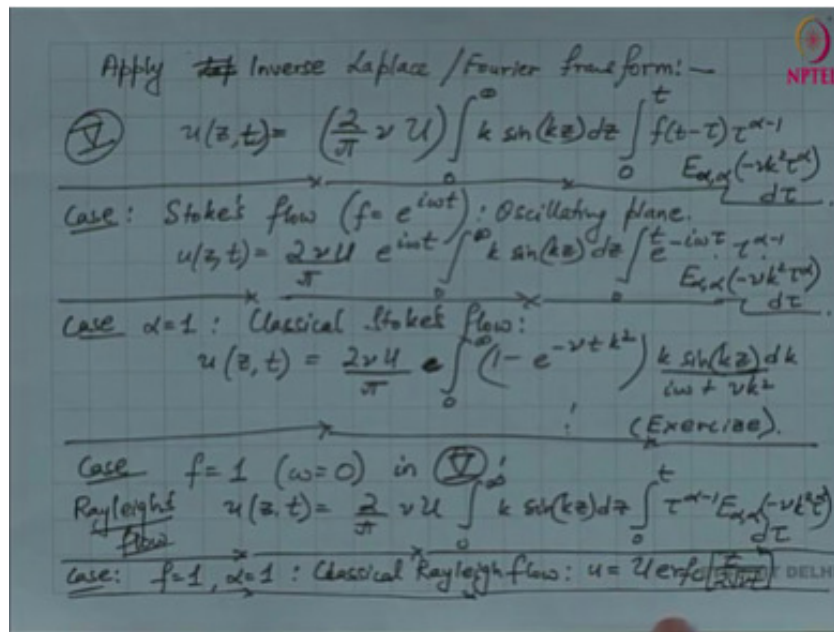 Apply Inverse Laplace / Fourier transform:—
NPTEL
(V) u(z,t) = (2/π ν U) ∫₀^∞ k sin(kz) dz ∫₀^t f(t-τ) τ^{α-1} E_{α,α}(-νk²τ^α) dτ.
Case: Stoke's flow (f = e^{iωt}): Oscillating plane.
u(z,t) = 2νU/π e^{iωt} ∫₀^∞ k sin(kz) dz ∫₀^t e^{-iωτ} τ^{α-1} E_{α,α}(-νk²τ^α) dτ.
Case α=1: Classical Stoke's flow:
u(z,t) = 2νU/π e ∫₀^∞ (1 - e^{-νtk²}) k sin(kz) dk / iω + νk²
(Exercize).
Case f=1 (ω=0) in (V):
Rayleigh's flow u(z,t) = 2/π νU ∫₀^∞ k sin(kz) dz ∫₀^t τ^{α-1} E_{α,α}(-νk²τ^α) dτ
Case: f=1, α=1: Classical Rayleigh flow: u = U erfc
DELH